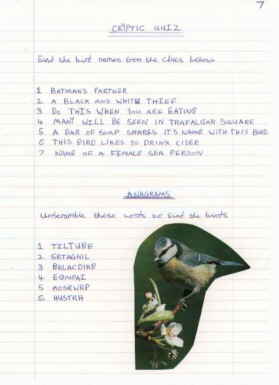 7
CRYPTIC QUIZ
Find the bird names from the clues below
1 BATMANS PARTNER
2 A BLACK AND WHITE THIEF
3 DO THIS WHEN YOU ARE EATING
4 MANY WILL BE SEEN IN TRAFALGAR SQUARE
5 A BAR OF SOAP SHARES ITS NAME WITH THIS BIRD
6 THIS BIRD LIKES TO DRINK CIDER
7 NAME OF A FEMALE SEA PERSON
ANAGRAMS
Unscramble these words to find the birds
1 TILTUBE
2
3 BALACDIKP
4 EGMPAI
5
6 HUSTRH